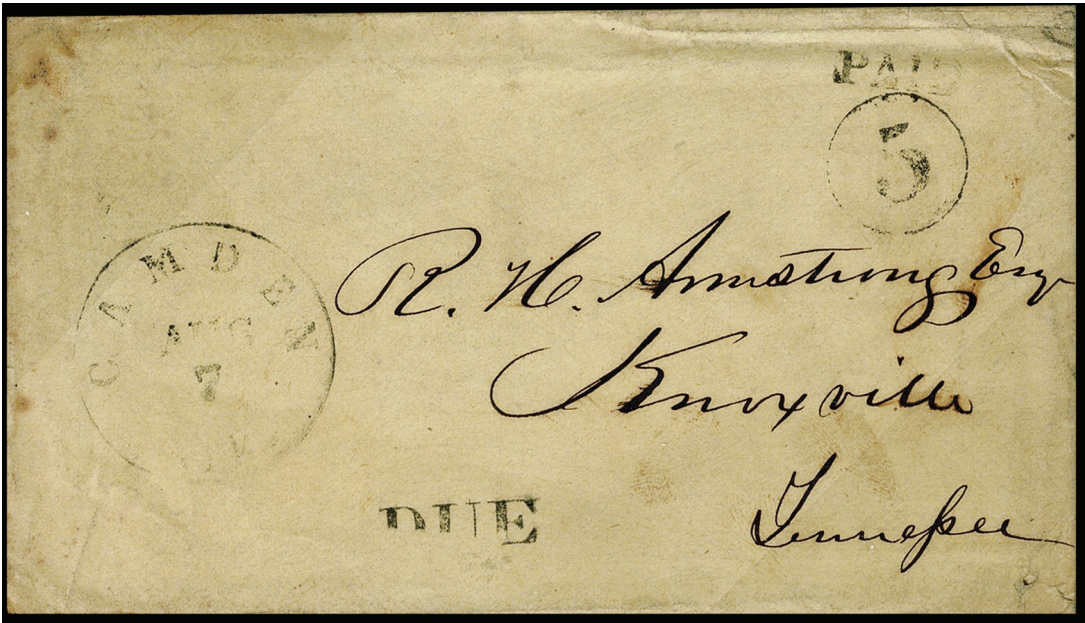 PAID
5
CAMDEN
AUG
7
R. H. Armstrong Esq
Knoxville
Tennessee
DUE